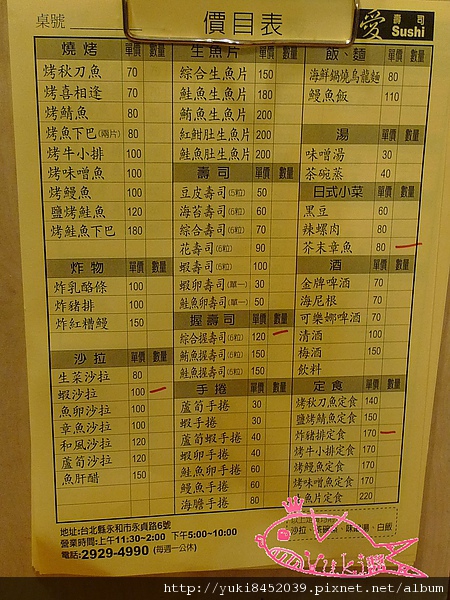 桌號
價目表
愛 壽司 Sushi
燒烤 單價 數量
烤秋刀魚 70
烤喜相逢 70
烤鯖魚 80
烤魚下巴(兩片) 80
烤牛小排 100
烤味噌魚 100
烤鰻魚 100
鹽烤鮭魚 120
烤鮭魚下巴 180
炸物 單價 數量
炸乳酪條 100
炸豬排 100
炸紅糟鰻 150
沙拉 單價 數量
生菜沙拉 80
蝦沙拉 100
魚卵沙拉 100
章魚沙拉 100
和風沙拉 120
蘆筍沙拉 120
魚肝醋 150
生魚片 單價 數量
綜合生魚片 150
鮭魚生魚片 180
鮪魚生魚片 200
紅魽肚生魚片 200
鮭魚肚生魚片 200
壽司 單價 數量
豆皮壽司(5粒) 50
海苔壽司(6粒) 60
綜合壽司(5粒) 70
花壽司(5粒) 90
蝦壽司(5粒) 100
蝦卵壽司(單一) 30
鮭魚卵壽司(單一) 50
握壽司 單價 數量
綜合握壽司(6粒) 120
鮪魚握壽司(6粒) 150
鮭魚握壽司(6粒) 150
手捲 單價 數量
蘆筍手捲 30
蝦手捲 30
蘆筍蝦手捲 40
蝦卵手捲 40
鮭魚卵手捲 60
鰻魚手捲 60
海膽手捲 80
飯、麵 單價 數量
海鮮鍋燒烏龍麵 80
鰻魚飯 110
湯 單價 數量
味噌湯 30
茶碗蒸 40
日式小菜 單價 數量
黑豆 60
辣螺肉 80
芥末章魚 80
酒 單價 數量
金牌啤酒 70
海尼根 70
可樂娜啤酒 70
清酒 100
梅酒 150
飲料
定食 單價 數量
烤秋刀魚定食 140
鹽烤鯖魚定食 150
炸豬排定食 170
烤牛小排定食 170
烤鰻魚定食 170
烤味噌魚定食 170
魚片定食 220
沙拉、
湯、白飯
地址:台北縣永和市永貞路6號
營業時間:上午11:30~2:00 下午5:00~10:00
電話:2929-4990 (每週一公休)
yuki
http://yuki8452039.pixnet.net/album